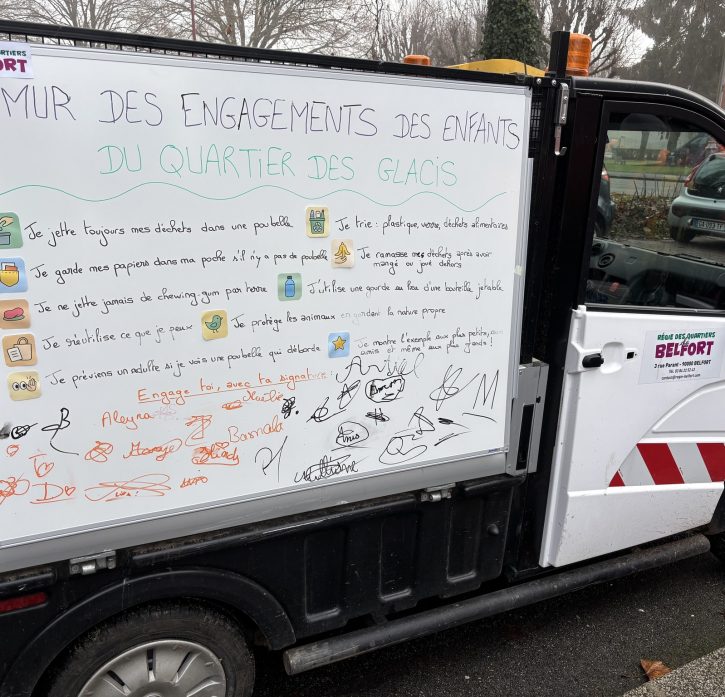 RTIERS
FORT
MUR DES ENGAGEMENTS DES ENFANTS
DU QUARTIER DES GLACIS
Je jette toujours mes déchets dans une poubelle
Je trie : plastique, verre, déchets alimentaires
Je garde mes papiers dans ma poche s'il n'y a pas de poubelle
Je ramasse mes déchets après avoir
mangé ou joué dehors
Je ne jette jamais de chewing-gum par terre
J'utilise une gourde au lieu d'une bouteille jetable
Je réutilise ce que je peux
Je protège les animaux en gardant la nature propre
Je préviens un adulte si je vois une poubelle qui déborde
Je montre l'exemple aux plus petits, aux
amis et même aux plus grands !
Engage toi, avec ta signature :
Aleyna
Anis
M
D
RÉGIE DES QUARTIERS
BELFORT
3 rue Parant - 90000 BELFORT